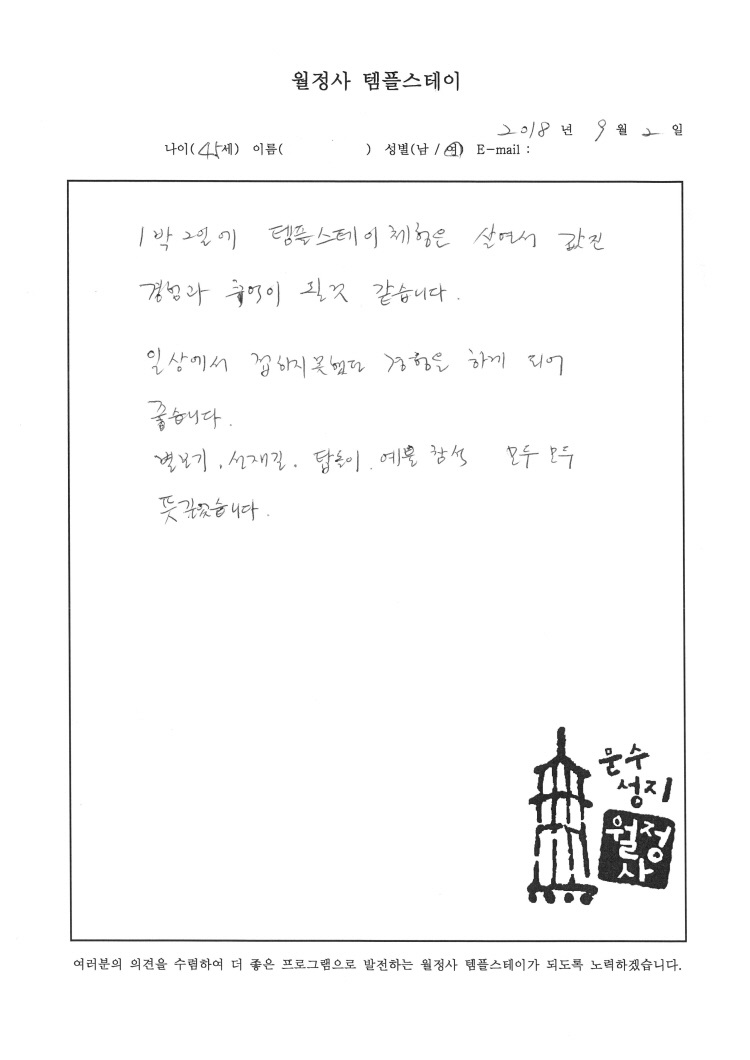 월정사 템플스테이
2018 년 9 월 2 일
나이( 45세) 이름( ) 성별(남 / 여) E-mail :
1박 2일에 템플스테이 체험은 살면서 값진
경험과 추억이 될것 같습니다.
일상에서 접하지못했던 경험을 하게 되어
좋습니다.
별보기, 선재길, 탑돌이, 예불 참석 모두 모두
뜻깊었습니다.
문수
성지
월정
사
여러분의 의견을 수렴하여 더 좋은 프로그램으로 발전하는 월정사 템플스테이가 되도록 노력하겠습니다.